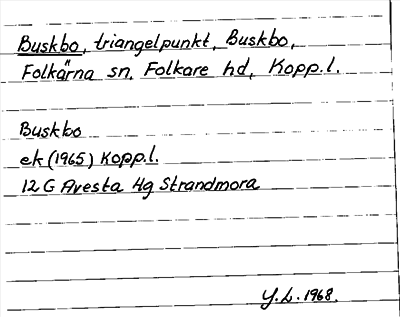 Buskbo, triangelpunkt, Buskbo,
Folkärna sn, Folkare hd, Kopp.l.
Buskbo
ek (1965) Kopp.l.
12 G Avesta Hg Strandmora
Y.L. 1968.